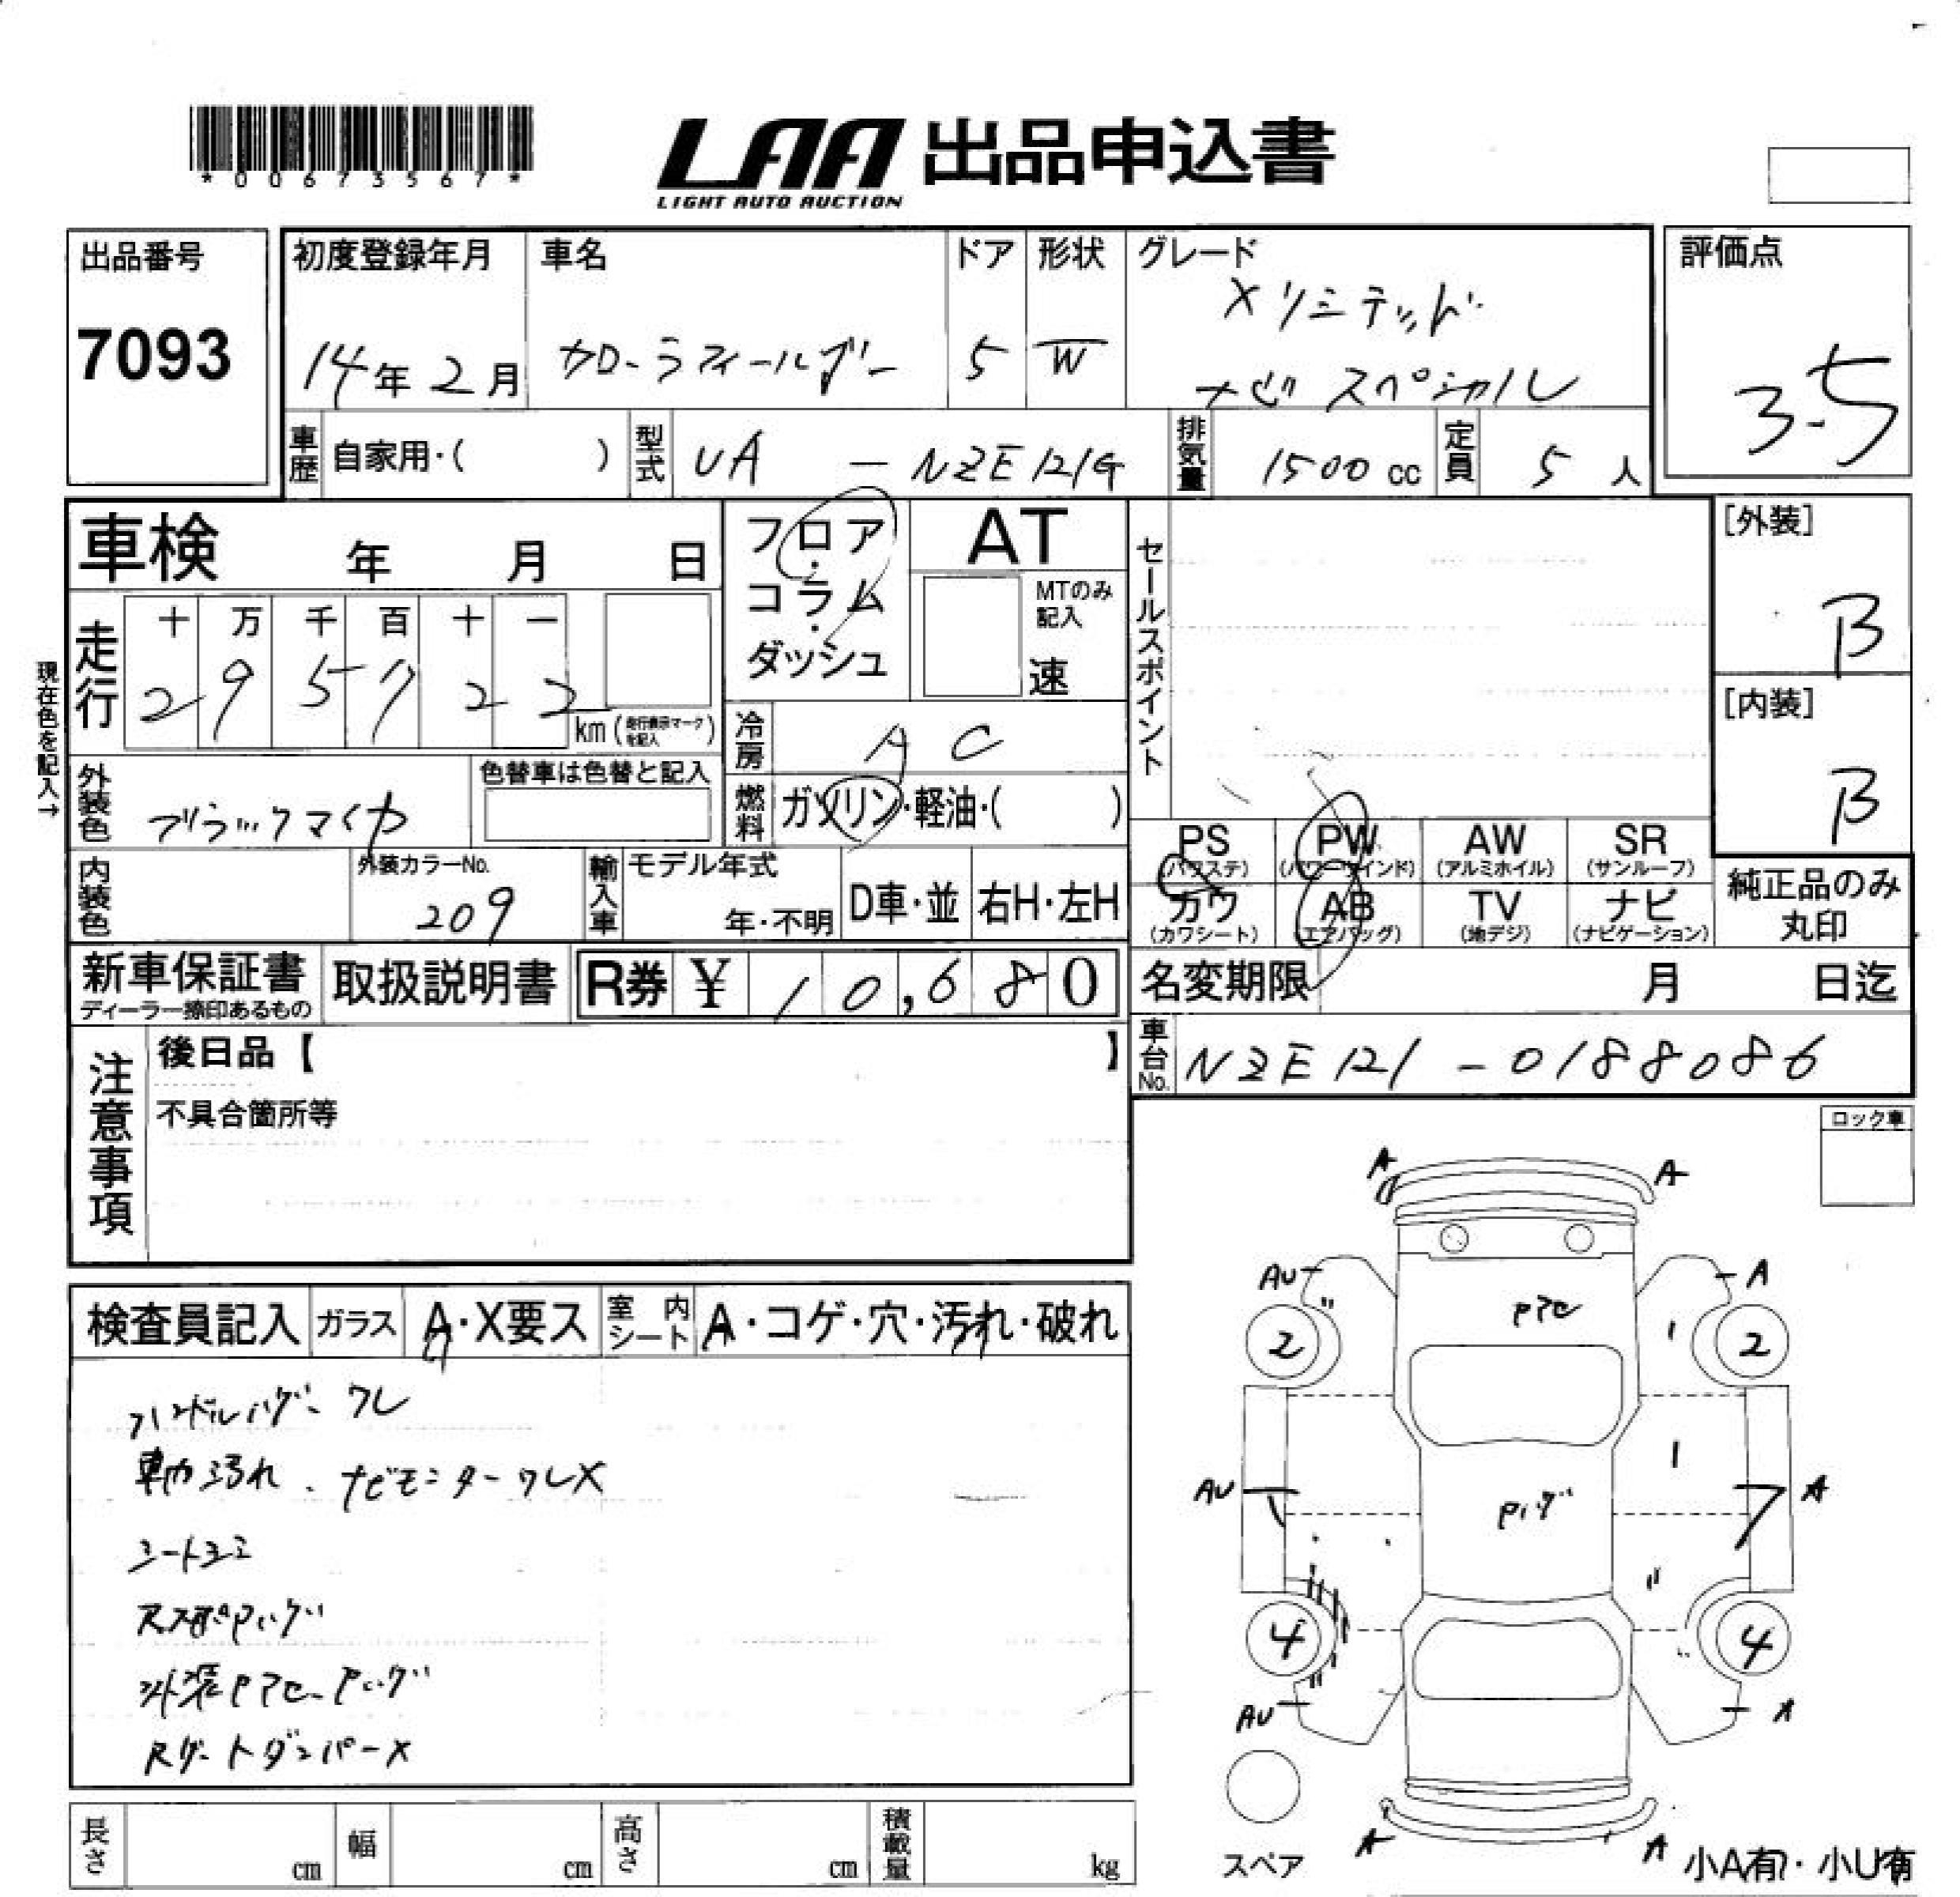 *00673567*
LAA 出品申込書
LIGHT AUTO AUCTION
出品番号
7093
初度登録年月
14年 2月
車名
カローラフィールダー
ドア
5
形状
W
グレード
Xリミテッド
ナビスペシャル
評価点
3.5
車歴 自家用・( )
型式 UA - NZE121G
排気量 1500 cc
定員 5 人
車検 年 月 日
フロア・
コラム・
ダッシュ
AT
MTのみ
記入
速
セールスポイント
[外装]
B
[内装]
B
現在色を記入→
走行
十 万 千 百 十 一
2 9 5 7 2 2
km (走行表示マークを記入)
冷房 AC
外装色 ブラックマイカ
色替車は色替と記入
燃料 ガソリン・軽油・( )
PS
(パワステ)
PW
(パワーウインド)
AW
(アルミホイル)
SR
(サンルーフ)
カワ
(カワシート)
AB
(エアバッグ)
TV
(地デジ)
ナビ
(ナビゲーション)
純正品のみ
丸印
内装色
外装カラーNo.
209
輸入車
モデル年式
年・不明
D車・並
右H・左H
新車保証書
ディーラー捺印あるもの
取扱説明書
R券 ¥ 10,680
名変期限 月 日迄
車台No. NZE121-0188086
注意事項
後日品【 】
不具合箇所等
ロック車
検査員記入
ガラス A・X要ス
室内シート A・コゲ・穴・汚れ・破れ
車内汚れ、ナビモニターワレX
外装
RゲートダンパーX
A A
AU A
2 2
AU A
4 4
AU A
A A
スペア
小A有・小U有
長さ cm
幅 cm
高さ cm
積載量 kg